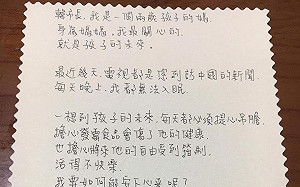 韓市長，我是一個兩歲孩子的媽，
身為媽媽，我最關心的，
就是孩子的未來。
最近幾天，電視都是你到訪中國的新聞，
每天晚上，我都無法入眠。
一想到孩子的未來，每天都必須提心吊膽
擔心發霉食品會傷了他的健康
也擔心將來他的自由受到箝制，
活得不快樂。
我要如何能安下心來呢？